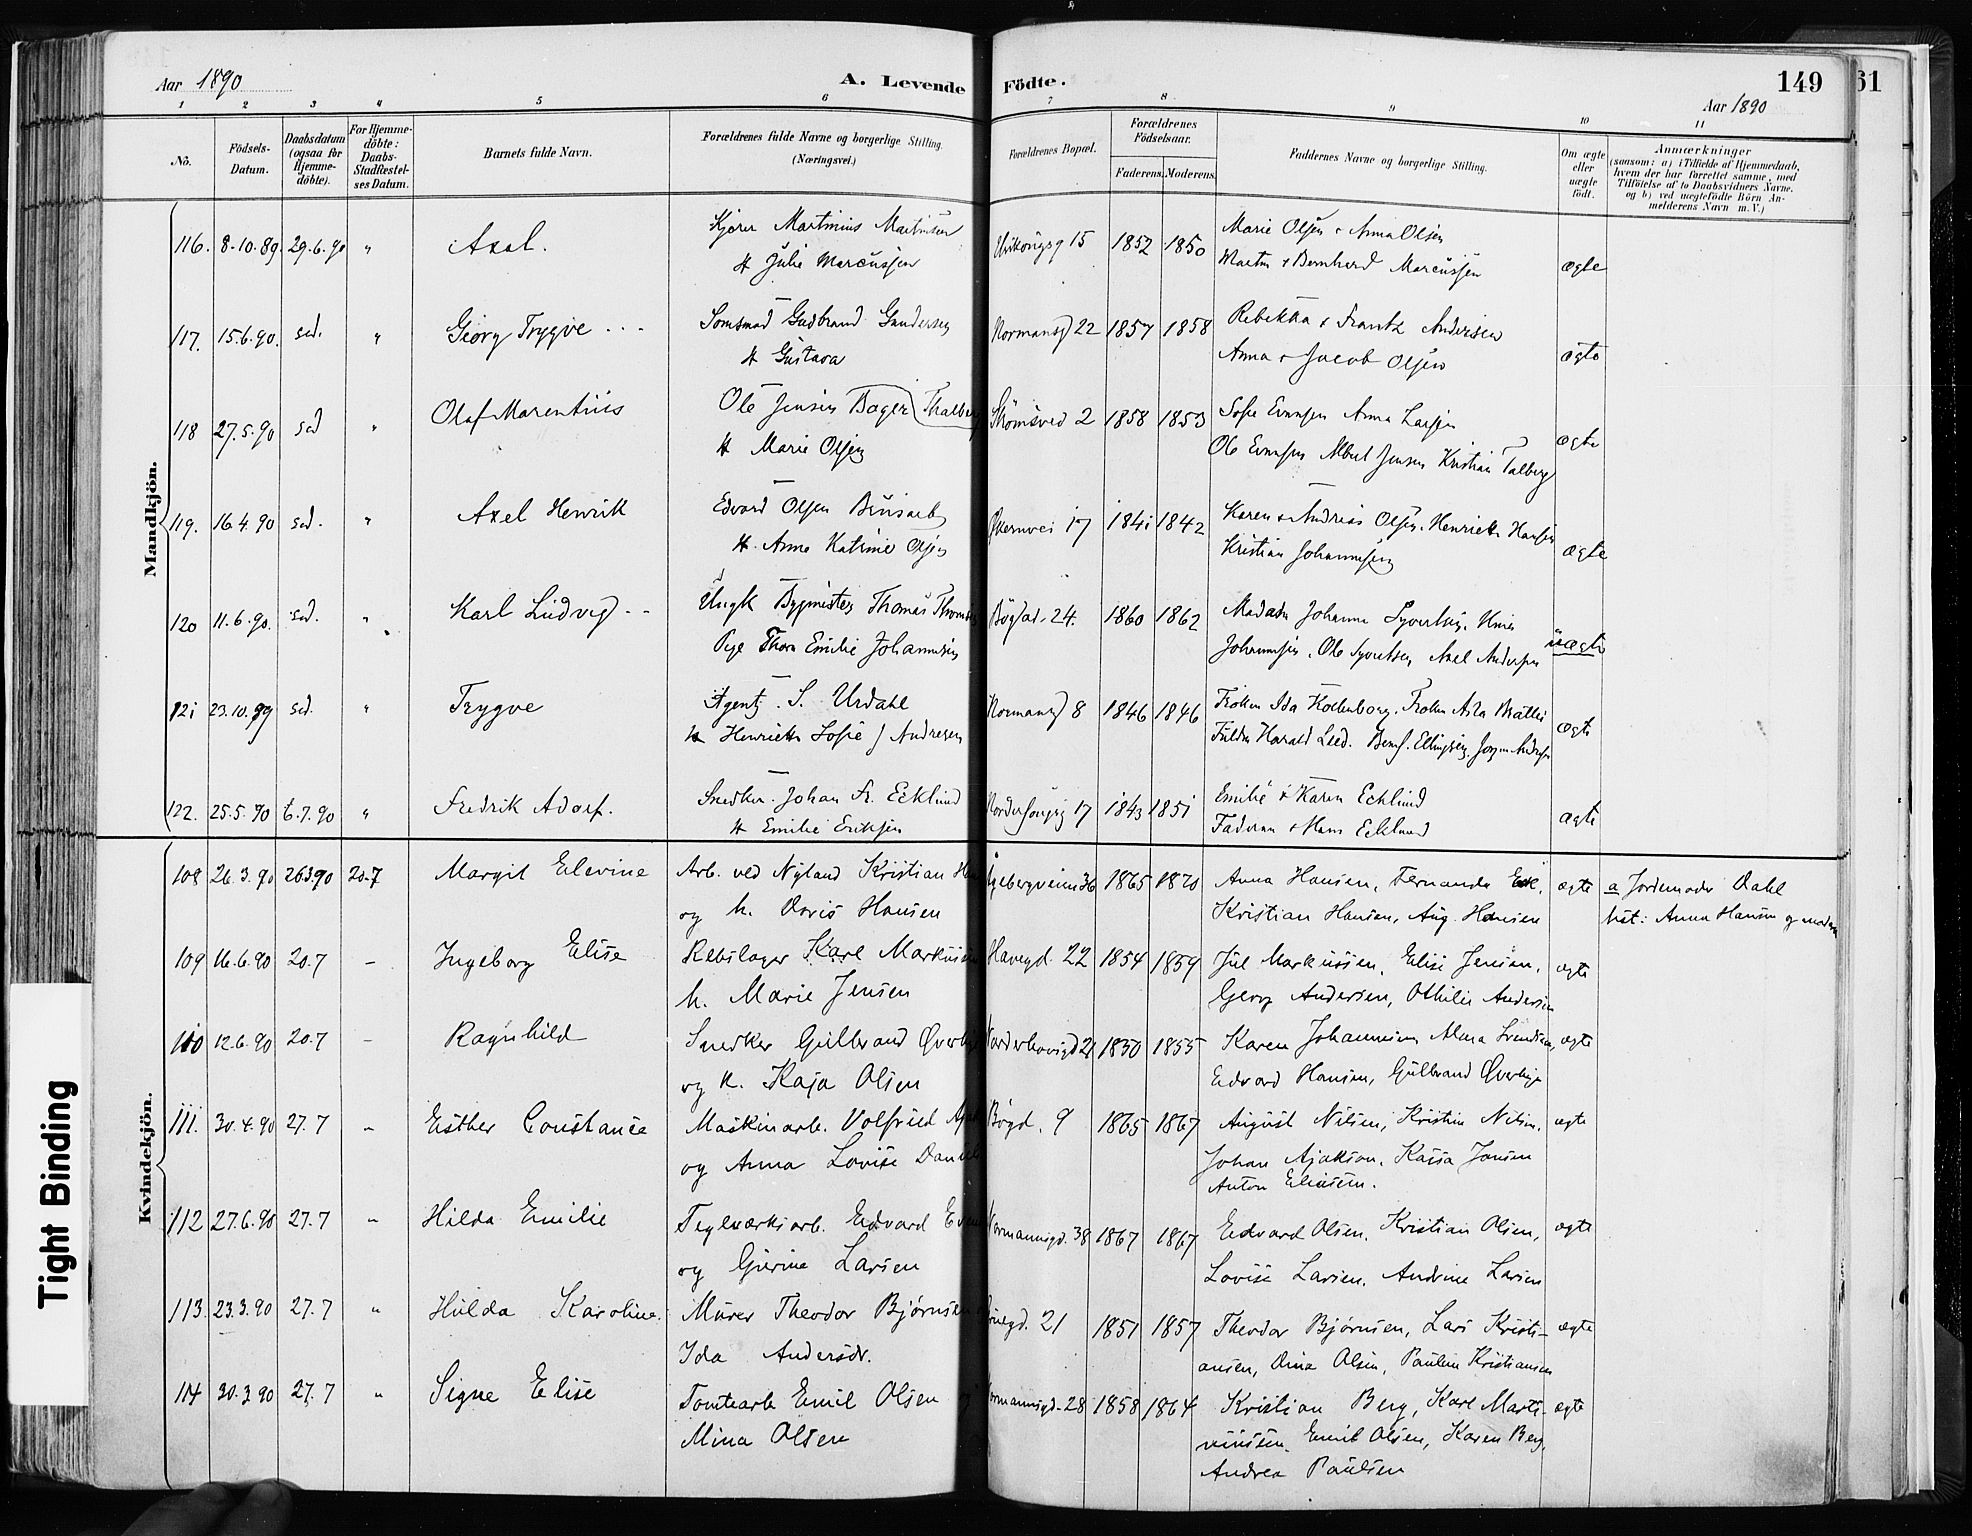 Aar 1890
A. Levende Födte.
149
61
Aar 1890
1 2 3 4 5 6 7 8 9 10 11
No.
Födsels-
Datum.
Daabsdatum
(ogsaa for
Hjemme-
döbte).
For Hjemme-
döbte:
Daabs-
Stadfestel-
ses Datum.
Barnets fulde Navn.
Forældrenes fulde Navne og borgerlige Stilling.
(Næringsvei.)
Forældrenes Bopæl.
Forældrenes
Födselsaar.
Faderens. Moderens.
Faddernes Navne og borgerlige Stilling.
Om ægte
eller
uægte
födt.
Anmærkninger
(saasom: a) i Tilfælde af Hjemmedaab,
hvem der har forrettet samme, med
Tilföielse af to Daabsvidners Navne.
og b) ved uægtefödte Börn An-
melderens Navn m. V.)
Mandkjön.
116. 8.10.89 29.6.90 " Axel. Martinius Martinsen 15 1852 1850 Marie Olsen & Anna Olsen
H Julie Marcussen Martin & Bernhard Marcussen ægte
117. 15.6.90. sd. " Georg Trygve Gudbrand Gundersen Normansg 22 1857 1858 Rebekka & Frantz Andersen
H Gustava Anna & Jacob Olsen ægte
118 27.5.90 sd " Olaf Marentius Ole Jensen Bager (Thalberg Strömsved 2 1858 1853 Sofie Evensen Anna Larsen
H Marie Olsen Ole Evensen Albert Jensen Kristian Talberg ægte
119. 16.4.90 sd. " Axel Henrik Edvard Olsen 17 1841 1842 Karen & Andreas Olsen. Henriette Hansen
H. Anne Katrine Olsen Kristian Johannesen ægte
120 11.6.90. sd. " Karl Ludvig Ungk Bygmester Thomas 24. 1860 1862 Madam Johanne Syvertsen.
Pige Thora Emilie Johannesen Johannesen. Ole Syvertsen Axel Andersen uægte
121 23.10.89 sd. " Trygve Agent S. Urdahl Normansg 8 1846 1846 Fröken Ida
H Henriette Sofie f Andresen Harald ægte
122. 25.5.90 6.7.90 " Fredrik Adorf. Snedker. Johan Fr. Ecklund 17 1843 1851 Emilie & Karen Ecklund
H Emilie Eriksen Faderen & Hans Ecklund ægte
Kvindekjön.
108 26.3.90 26.3.90 20.7 Margit Elevine Arb. ved Nyland Kristian 36 1865 1870 Anna Hansen, Fernanda Eek, ægte a Jordemoder Dahl
og h. Doris Hansen Kristian Hansen, Aug. Hansen Anna Hansen og moderen
109 16.6.90 20.7 – Ingeborg Elise Rebslager Karl Markussen Havegd. 22 1854 1859 Jul Markussen, Elise Jensen, ægte
h. Marie Jensen Georg Andersen, Othilie Andersen
110 12.6.90 20.7 – Ragnhild Snedker Gulbrand Øverby Norderhovsgd 21 1850 1855 Karen Johannesen Alma Svendsen, ægte
og h. Kaja Olsen Edvard Hansen, Gulbrand Øverby
111. 30.4.90 27.7 " Esther Constance Maskinarb. Volfried Bögd. 9 1865 1867 August Nilsen, Kristine Nilsen, ægte
og Anna Lovise Johan Ajakson, Kassa Jansen
Anton Eliasen.
112 27.6.90 27.7 " Hilda Emilie Teglværksarb. Edvard Normannsgd. 38 1867 1867 Edvard Olsen, Kristian Olsen, ægte
og Gurine Larsen Lovise Larsen, Andrine Larsen
113. 23.3.90 27.7 " Hulda Karoline Murer Theodor Björnsen 21 1851 1857 Theodor Björnsen, Lars Kristi- ægte
Ida Andersdr. ansen, Dina Olsen, Pauline Kristiansen
114 30.3.90 27.7 " Signe Elise Tomtearb Emil Olsen Normannsgd. 28 1858 1864 Kristian Berg, Karl Marti- ægte
Mina Olsen niussen, Emil Olsen, Karen Berg,
Andrea Paulsen
Tight Binding